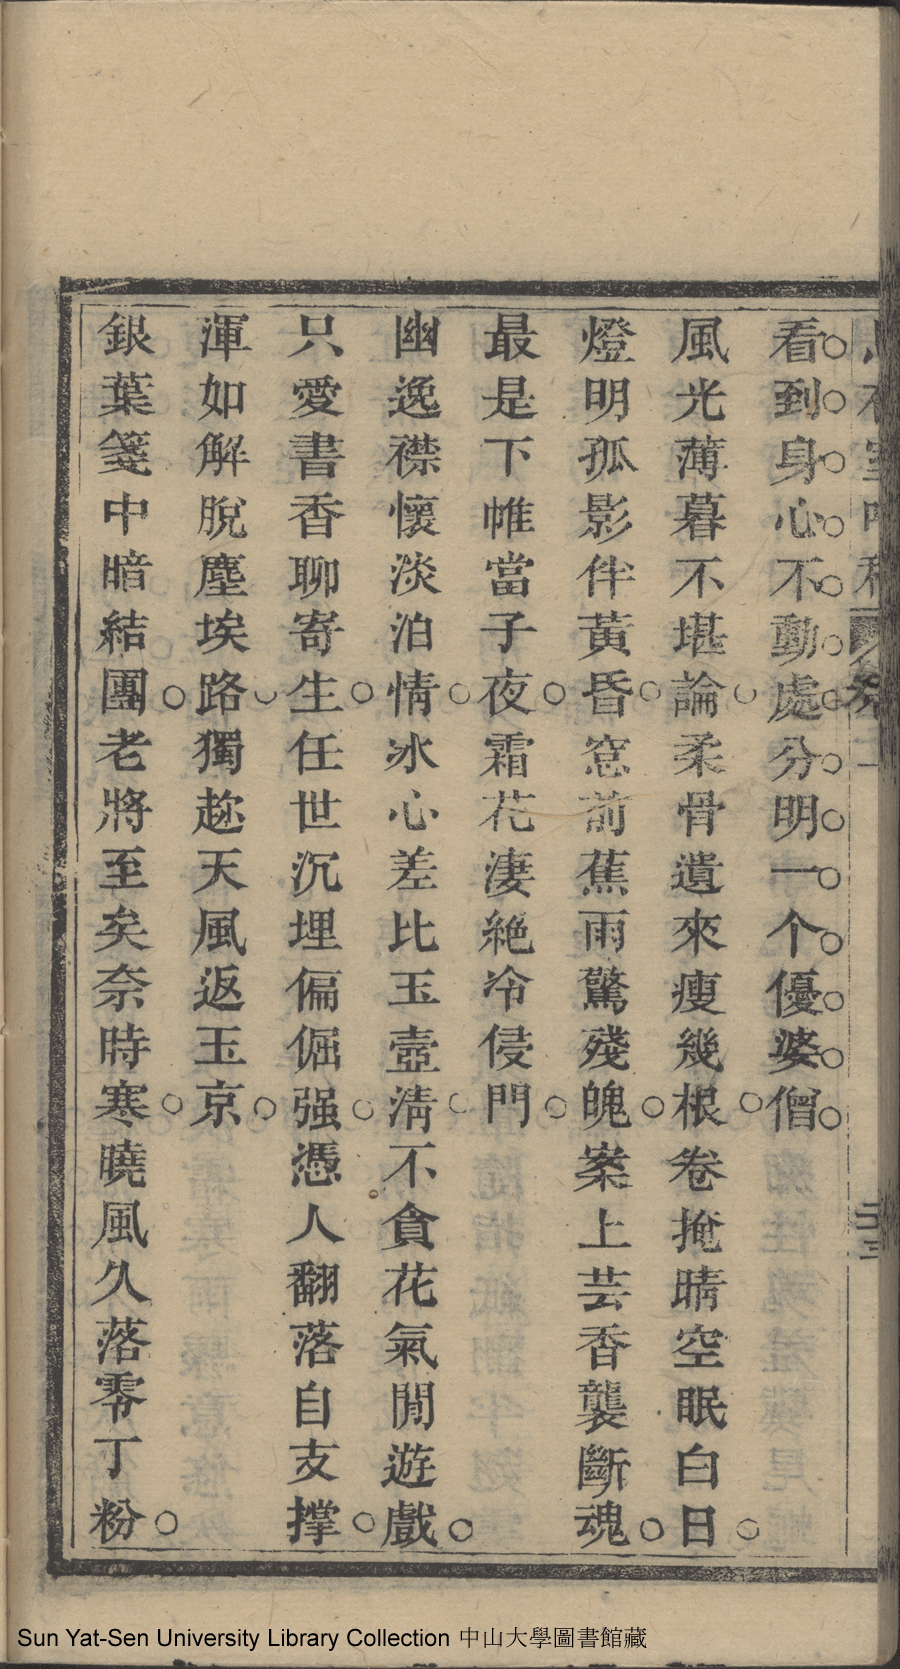 看到身心不動處分明一个優婆僧
風光薄暮不堪論柔骨遺來瘦幾根卷掩晴空眠白日
燈明孤影伴黃昏窓前蕉雨驚殘魄案上芸香襲斷魂
最是下帷當子夜霜花凄絶冷侵門
幽逸襟懷淡泊情冰心差比玉壺淸不貪花氣閒遊戲
只愛書香聊寄生任世沉埋偏倔强憑人翻落自支撑
渾如解脫塵埃路獨趂天風返玉京
銀葉箋中暗結團老將至矣奈時寒曉風久落零丁粉
Sun Yat-Sen University Library Collection 中山大學圖書館藏